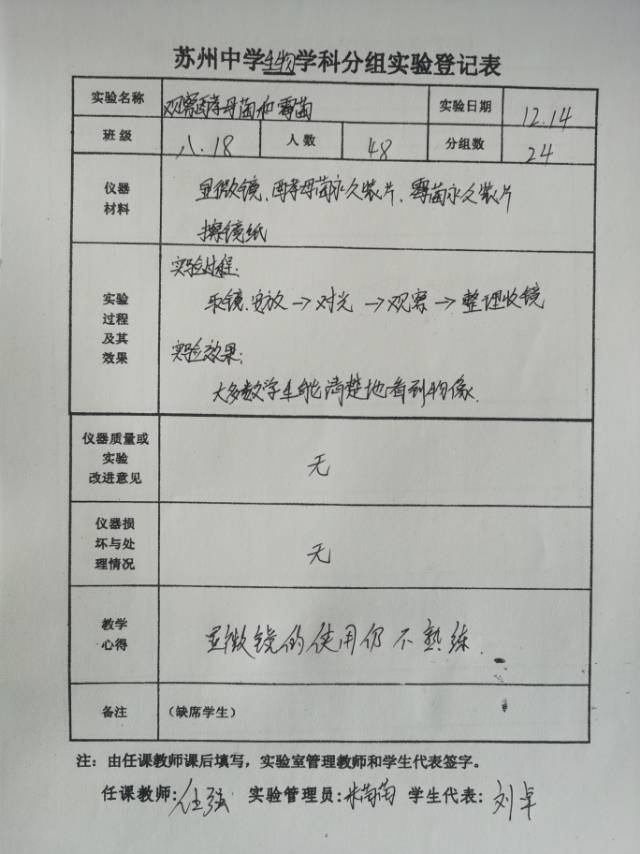 苏州中学生物学科分组实验登记表
实验名称 观察酵母菌和霉菌 实验日期 12.14
班级 八.18 人数 48 分组数 24
仪器
材料
显微镜、酵母菌永久装片、霉菌永久装片
擦镜纸
实验
过程
及其
效果
实验过程:
取镜、安放→对光→观察→整理收镜
实验效果:
大多数学生能清楚地看到物像.
仪器质量或
实验
改进意见
无
仪器损
坏与处
理情况
无
教学
心得
显微镜的使用仍不熟练.
备注 (缺席学生)
注：由任课教师课后填写，实验室管理教师和学生代表签字。
任课教师: 任弦 实验管理员: 学生代表: 刘卓